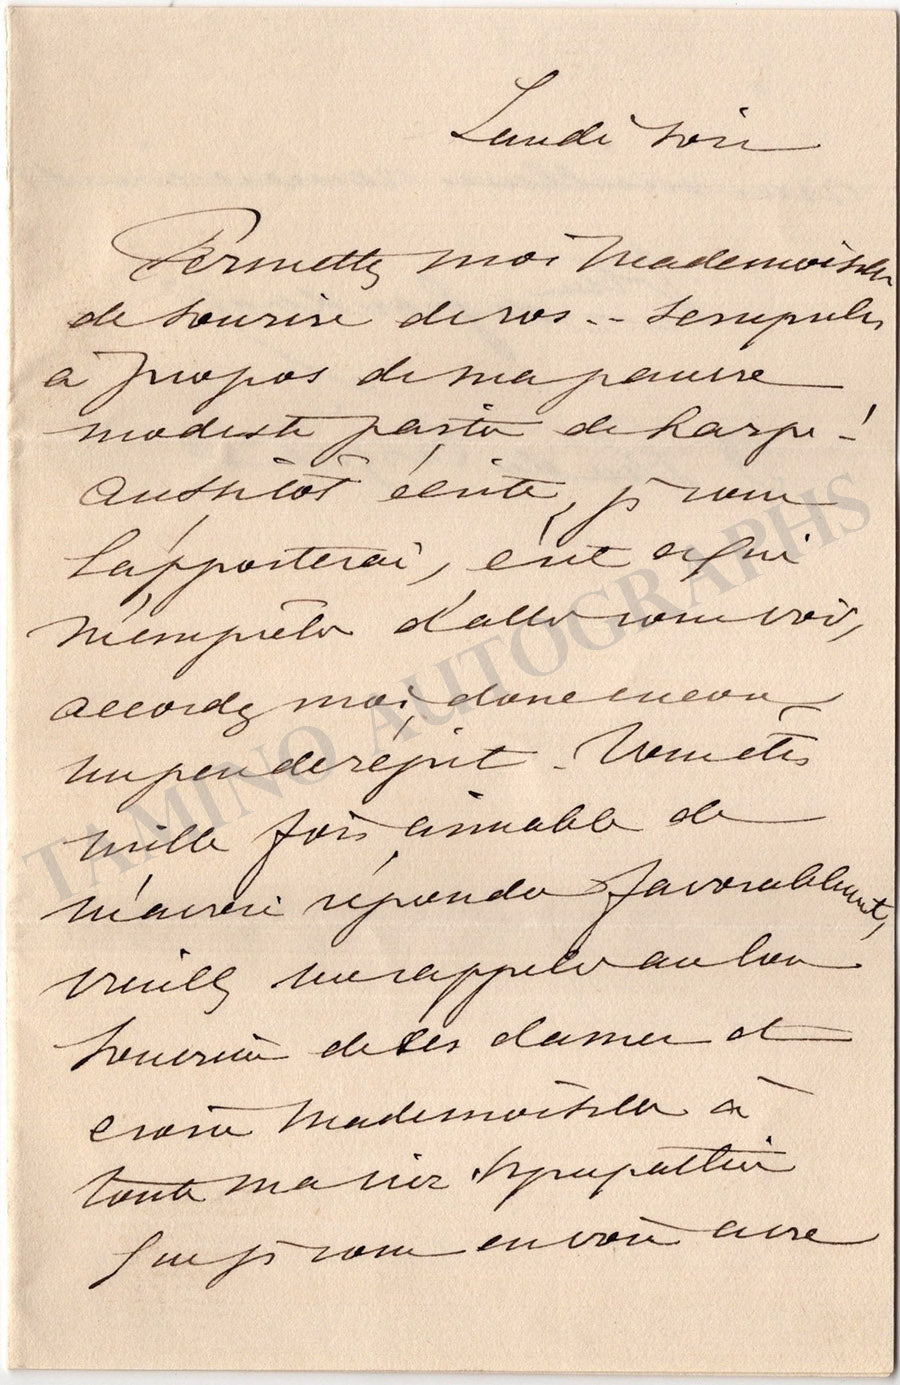 Lundi soir
Permettez moi Mademoiselle
de sourire de vos -- scrupules
à propos de ma pauvre
modeste partie de harpe !
Aussitôt écrite, je vous
l'apporterai, c'est ce qui
m'empêche d'aller vous voir,
accordez moi, donc encore
un peu de répit - Vous êtes
mille fois aimable de
m'avoir répondu favorablement,
veuillez me rappeler au bon
souvenir de ces dames et
croire Mademoiselle à
toute ma vive sympathie
que je vous envoie avec
TAMINO AUTOGRAPHS